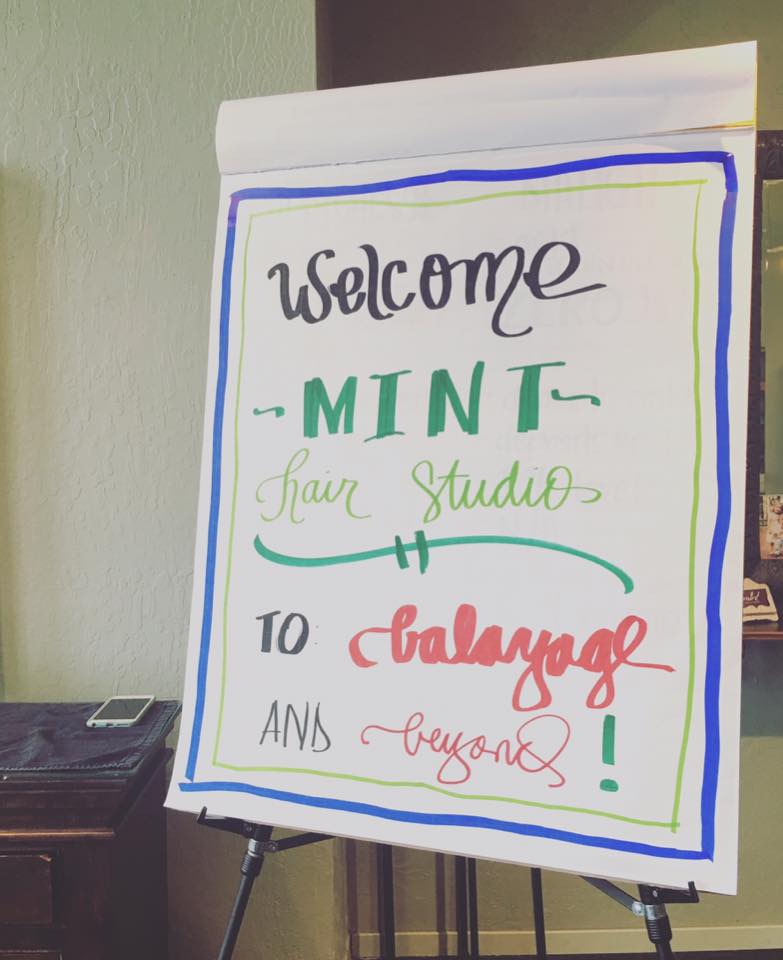 Welcome
-MINT-
hair Studio
TO balayage
AND beyond!